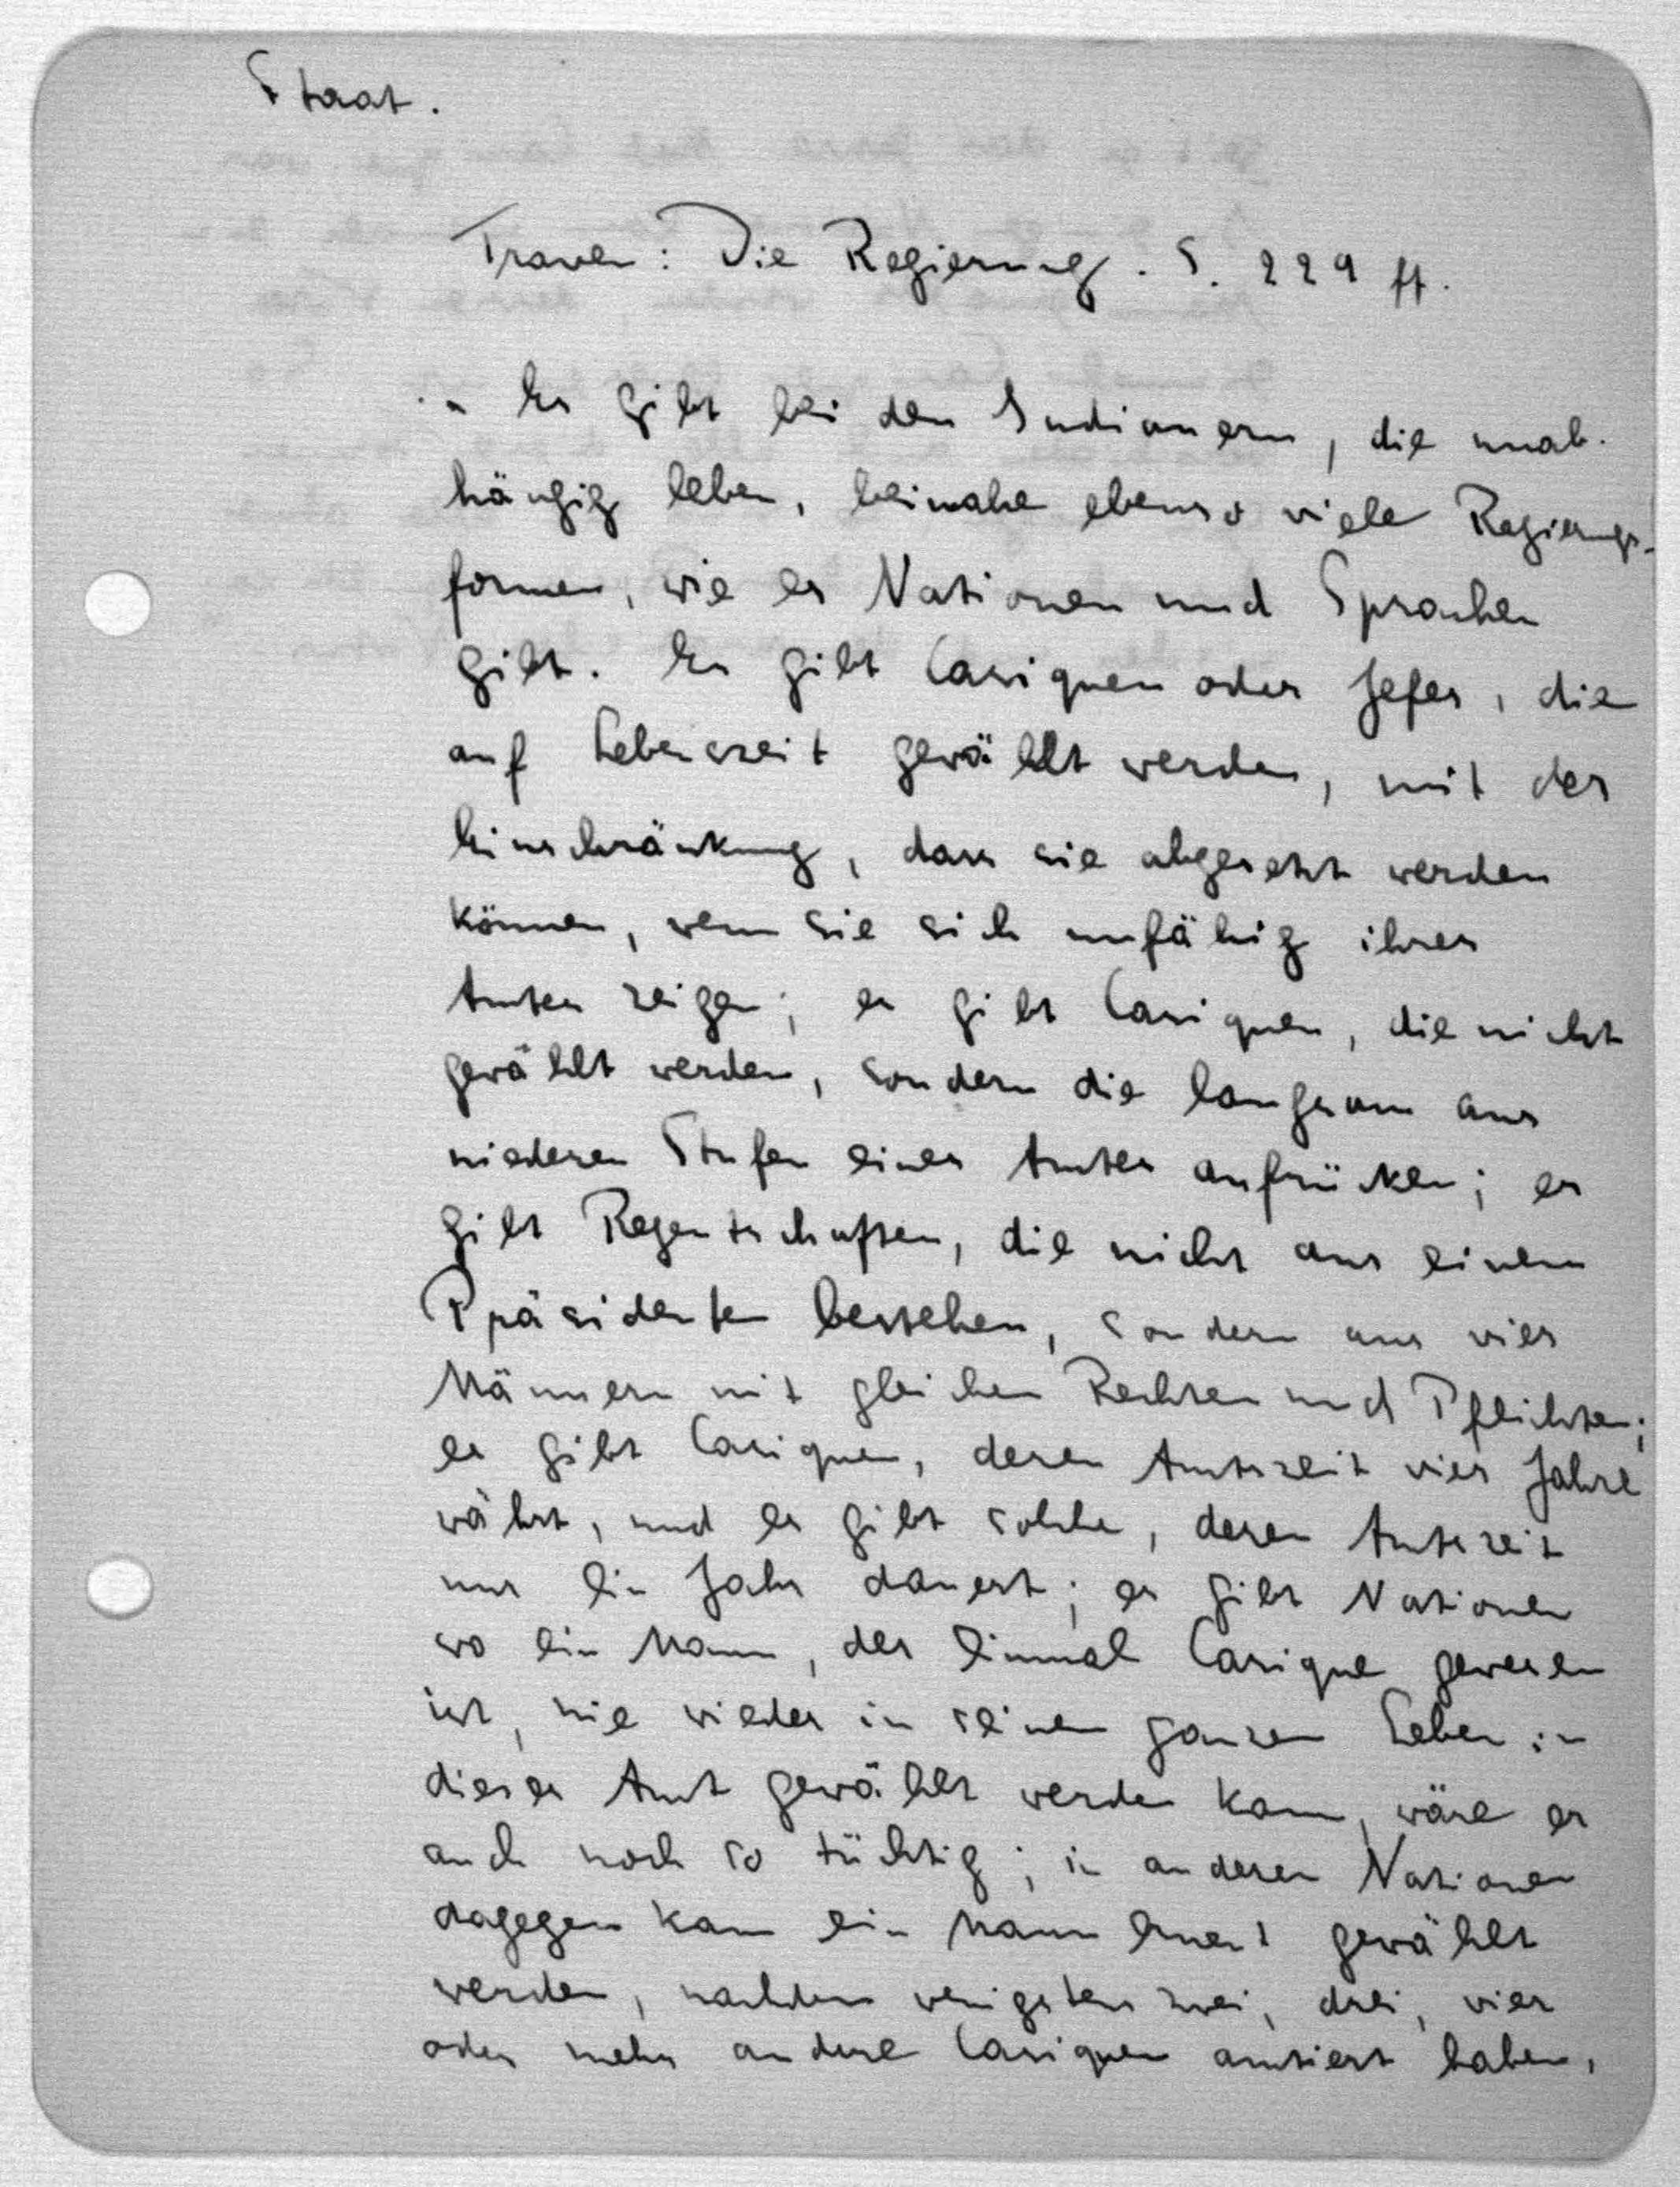 Staat.
Traven: Die Regierung. S. 229 ff.
" Es gibt bei den Indianern, die unab-
hängig leben, beinahe ebenso viele Regierungs-
formen, wie es Nationen und Sprachen
gibt. Es gibt Casiquen oder Jefes, die
auf Lebenszeit gewählt werden, mit der
Einschränkung, dass sie abgesetzt werden
können, wenn sie sich unfähig ihres
Amtes zeigen; es gibt Casiquen, die nicht
gewählt werden, sondern die langsam aus
niederen Stufen eines Amtes aufrücken; es
gibt Regentschaften, die nicht aus einem
Präsidenten bestehen, sondern aus vier
Männern mit gleichen Rechten und Pflichten;
es gibt Casiquen, deren Amtszeit vier Jahre
währt, und es gibt solche, deren Amtszeit
nur ein Jahr dauert; es gibt Nationen
wo ein Mann, der einmal Casique gewesen
ist, nie wieder in seinem ganzen Leben in
dieses Amt gewählt werden kann, wäre er
auch noch so tüchtig; in anderen Nationen
dagegen kann ein Mann erneut gewählt
werden, nachdem wenigstens zwei, drei, vier
oder mehr andere Casiquen amtiert haben,